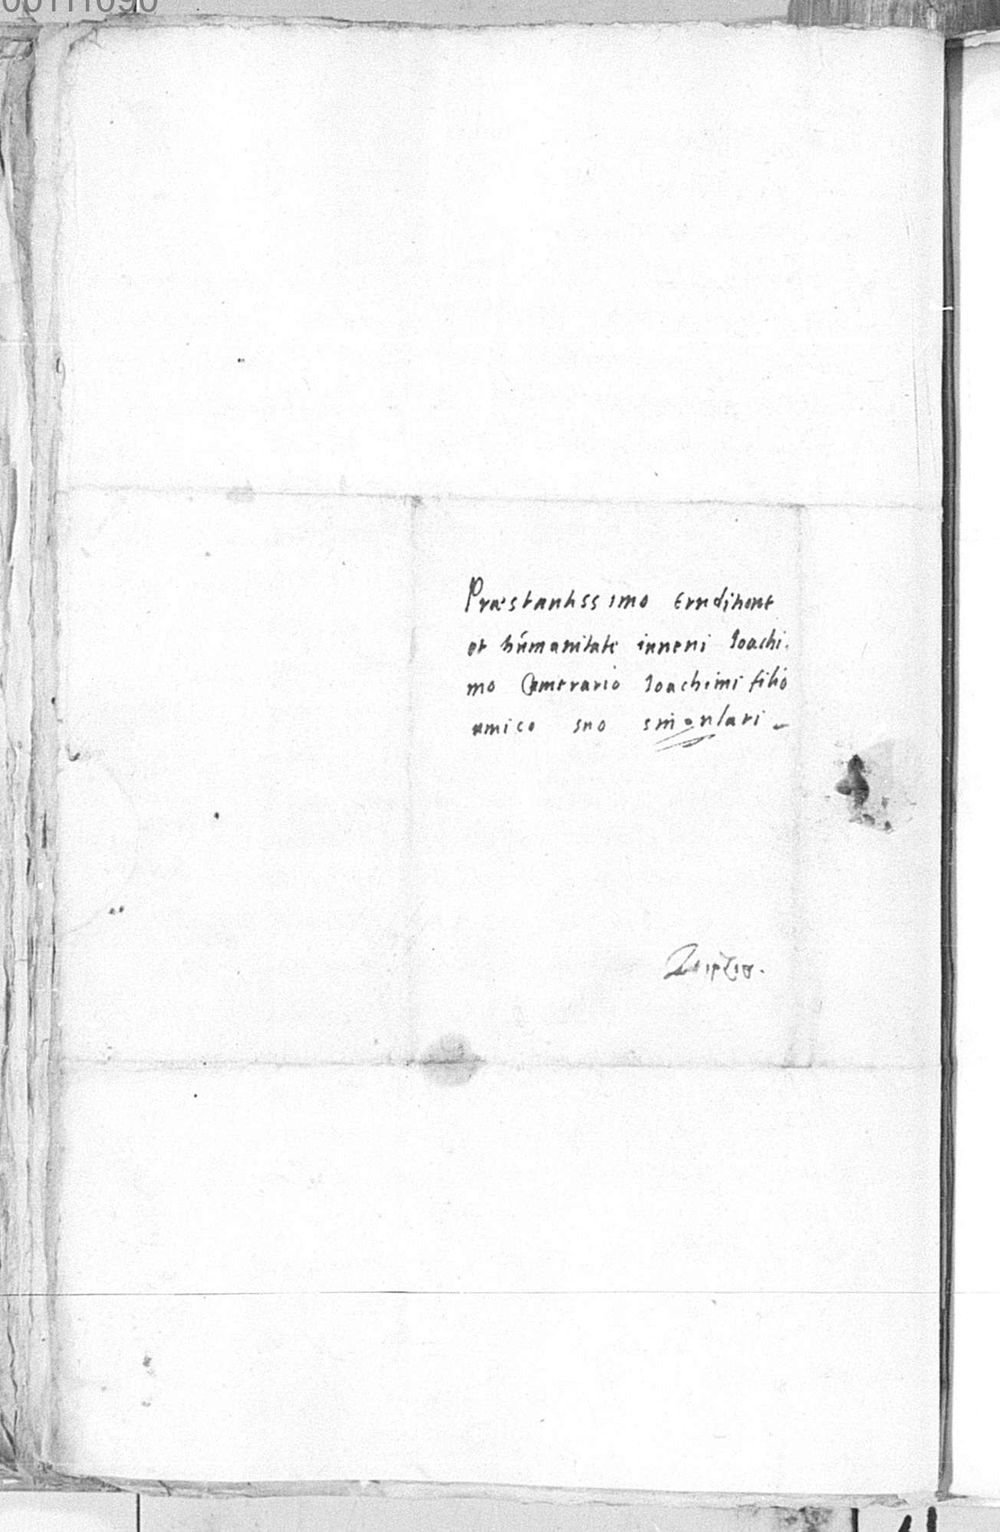 00111090
Præstantissimo Eruditione
et húmanitate iuueni Ioachi-
mo Camerario Ioachimi filio
amico suo singulari
Leipzig.